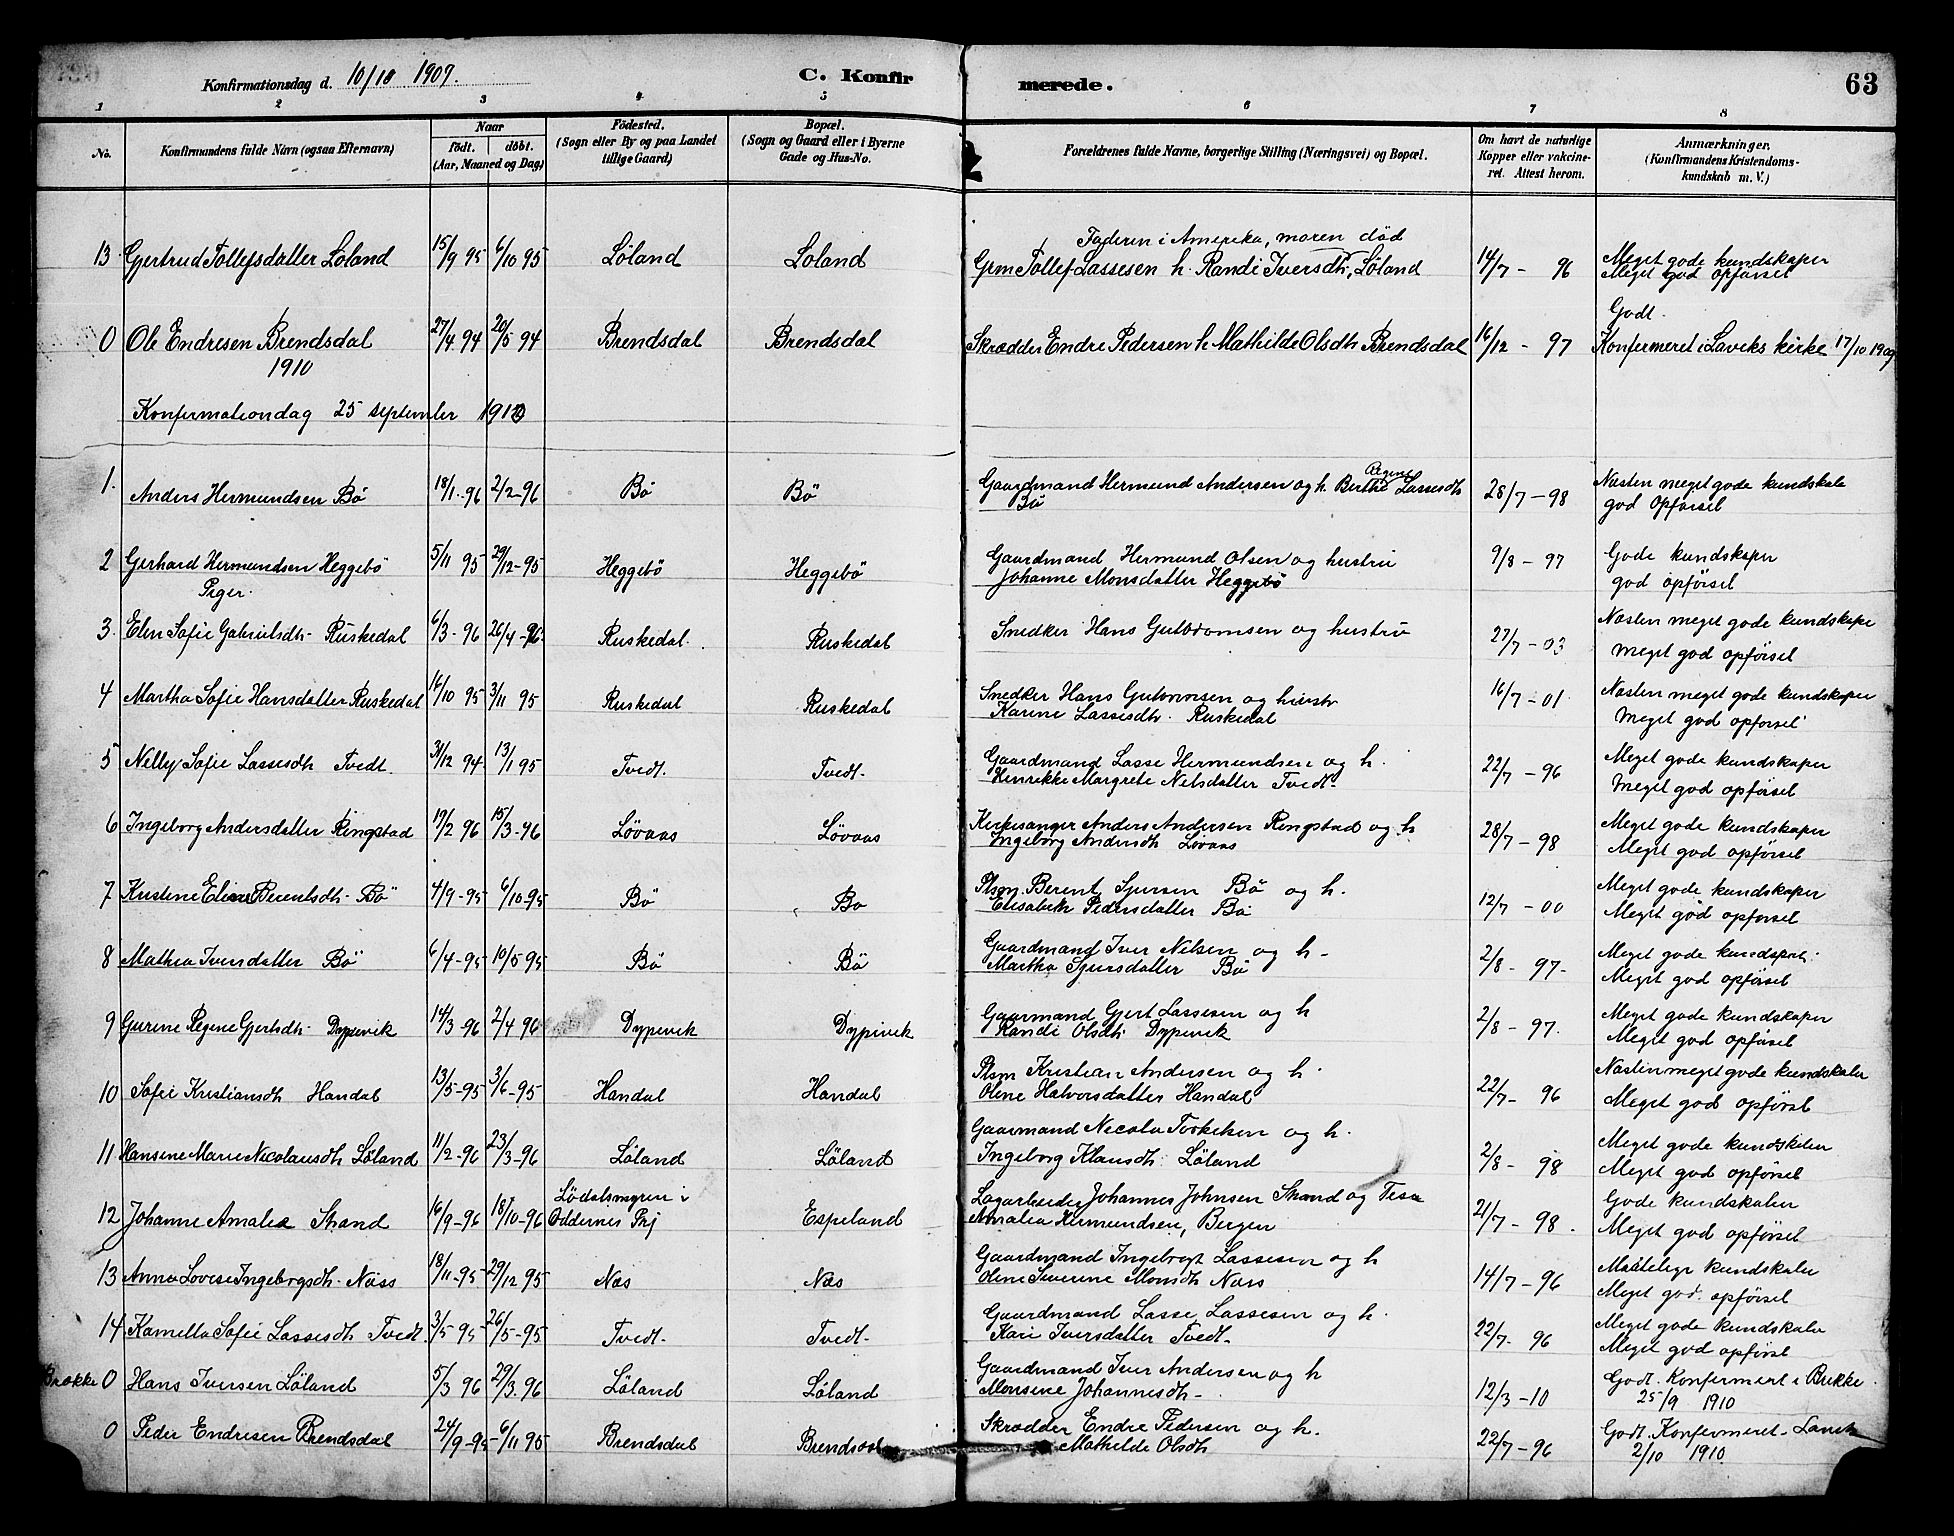 Konfirmationsdag d. 10/10 1909.
C. Konfirmerede.
63
1 2 3 4 5 6 7 8
No.
Konfirmandens fulde Navn (ogsaa Efternavn)
Naar
født. døbt.
(Aar, Maaned og Dag)
Fødested.
(Sogn eller By og paa Landet
tillige Gaard)
Bopæl.
(Sogn og Gaard eller i Byerne
Gade og Hus-No.
Forældrenes fulde Navne, borgerlige Stilling (Næringsvei) og Bopæl.
Om havt de naturlige
Kopper eller vakcine-
ret. Attest herom.
Anmærkninger.
(Konfirmandens Kristendoms-
kundskab m. V.)
Faderen i Amerika, moren död
13 Gjertrud Tollefsdatter Löland 15/9 95 6/10 95 Löland Löland Grm Tollef Lassesen h. Randi Iversdtr, Löland 14/7 - 96 Meget gode kundskaper
Meget god opförsel
Godt.
0 Ole Endresen Brendsdal 27/4 94 20/5 94 Brendsdal Brendsdal Skrædder Endre Pedersen h Mathilde Olsdtr Brendsdal 16/12 - 97 Konfermeret i Laviks kirke 17/10 1909
1910
Konfermationdag 25 september 1910
1. Anders Hermundsen Bö 18/1-96 2/2-96 Bö Bö Gaardmand Hermund Andersen og h. Birthe Regine Lassesdtr
Bö 28/7-98 Næsten meget gode kundskaper
god opförsel
2 Gerhard Hermundsen Heggebö 5/11 95 29/12-95 Heggebö Heggebö Gaardmand Hermund Olsen og hustru
Johanne Monsdatter Heggebö 9/8-97 Gode kundskaper
god opförsel
Piger.
3. Elen Sofie Gabrielsdtr Ruskedal 6/3-96 26/4-96 Ruskedal. Ruskedal Snedker Hans Guttormsen og hustru 27/7-03 Næsten meget gode kundskaper
meget god opförsel
4 Martha Sofie Hansdatter Ruskedal 14/10 95 3/11 95 Ruskedal Ruskedal Snedker Hans Guttormsen og hustr
Karine Lassesdtr. Ruskedal 16/7-01 Næsten meget gode kundskaper
Meget god opförsel
5 Nelly Sofie Lassesdtr Tvedt. 31/12 94. 13/1 95 Tvedt. Tvedt. Gaardmand Lasse Hermundsen og h.
Henrikke Margrete Nilsdatter Tvedt. 22/7-96 Meget gode kundskaper
Meget god opförsel
6 Ingeborg Andersdatter Ringstad 19/2 96 15/3-96 Lövaas Lövaas Kirkesanger Anders Andersen Ringstad og h
Ingeborg Andersdtr Lövaas 28/7-98 Meget gode kundskaper
Meget god opförsel
7 Kristine Eline Berentsdtr Bö 4/9-95 6/10-95 Bö Bö Plsm. Berent Sjursen Bö og h.
Elisabeth Pedersdatter Bö 12/7-00 Meget gode kundskaper
Meget god opförsel
8 Mathea Iversdatter Bö 6/4-95 19/5-95 Bö Bö Gaardmand Iver Nilsen og h-
Martha Sjursdatter Bö 2/8-97- Meget gode
Meget god opförsel
9 Gurine Regine Gjertsdtr Dypevik 14/3-96 2/4 96 Dypevik Dypevik Gaarmand Gjert Lassesen og h
Randi Olsdtr Dypevik 2/8-97. Meget gode kundskaper
Meget god opförsel
10 Sofie Kristiansdtr Handal 13/5-95 3/6-95 Handal Handal Plsm Kristian Andersen og h.
Oline Halvorsdatter Handal 22/7-96 Næsten meget gode kundskaper
Meget god opförsel
11 Hansine Marie Nicolausdtr Löland 11/2-96 23/3-96 Löland Löland Gaarmand Nicola Torkelsen og h.
Ingeborg Klausdtr Löland 2/8-98 Meget gode kundskaper
Meget god opförsel
12 Johanne Amalie Strand 16/9-96 18/10-96 Lödalsmyren i
Oddernes Pgj Espeland Johannes Johnsen Strand og
Amalia Hermundsen, Bergen 21/7-98. Gode kundskaper
Meget god opförsel
13 Anna Lovise Ingebrigtsdtr Næss 18/11-95 29/12 95 Næs Næs Gaardmand Ingebrigt Lassesen og h
Oline Severine Monsdtr Næss 14/7-96 Maatelige kundskaper
Meget god. opförsel
14 Kamilla Sofie Lassesdtr Tvedt. 3/5-95 26/5-95 Tvedt- Tvedt- Gaardmand Lasse Lassesen og h.
Kari Iversdatter Tvedt- 22/7-96 Meget gode kundskaper
Meget god opförsel
Brække 0 Hans Iversen Löland 5/3 96 29/3.96 Löland Löland Gaardmand Iver Andersen og h
Monsine Johannesdtr- 12/3-10 Godt. Konfermert i Brekke
25/9 1910
0 Peder Endresen Brendsdal 24/9-95 6/11 95 Brendsdal Brendsdal Skrædder Endre Pedersen og h.
Mathilde Olsdtr 22/7-96 Godt. Konfermeret Lavik
2/10 1910